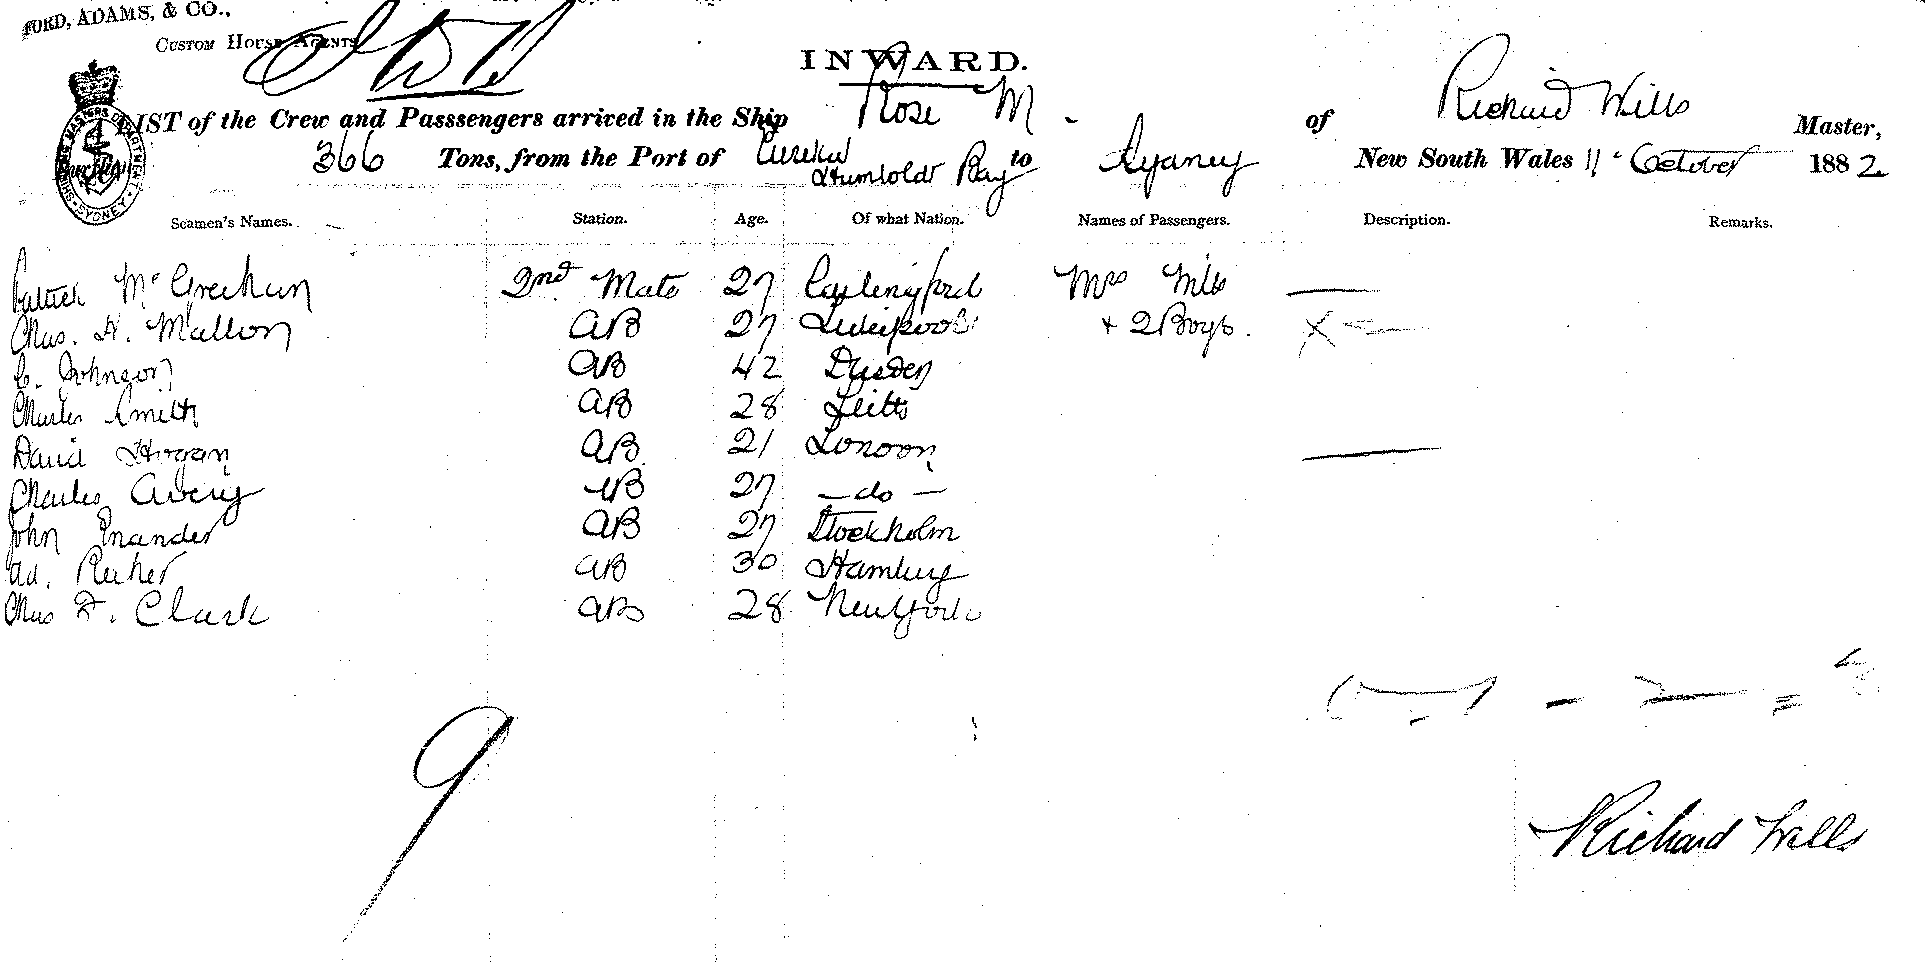 FORD, ADAMS, & CO.,
CUSTOM HOUSE AGENTS
INWARD.
LIST of the Crew and Passsengers arrived in the Ship Rose M of Richard Wills Master,
366 Tons, from the Port of Eureka Humboldt Bay to Sydney New South Wales 11 October 1882
Seamen's Names. Station. Age. Of what Nation. Names of Passengers. Description. Remarks.
Patrick McGreehan 2nd Mate 27 Carlingford Mrs Wills
Chas. H. Mallon AB 27 Liverpool + 2 Boys.
C. Johnson AB 42 
Charles Smith AB 28 Leith
David Hogan AB 21 London
Charles Avery AB 27 — do —
John Enander AB 27 Stockholm
Ad. AB 30 Hamburg
Chas F. Clark AB 28 New York
9
Richard Wills